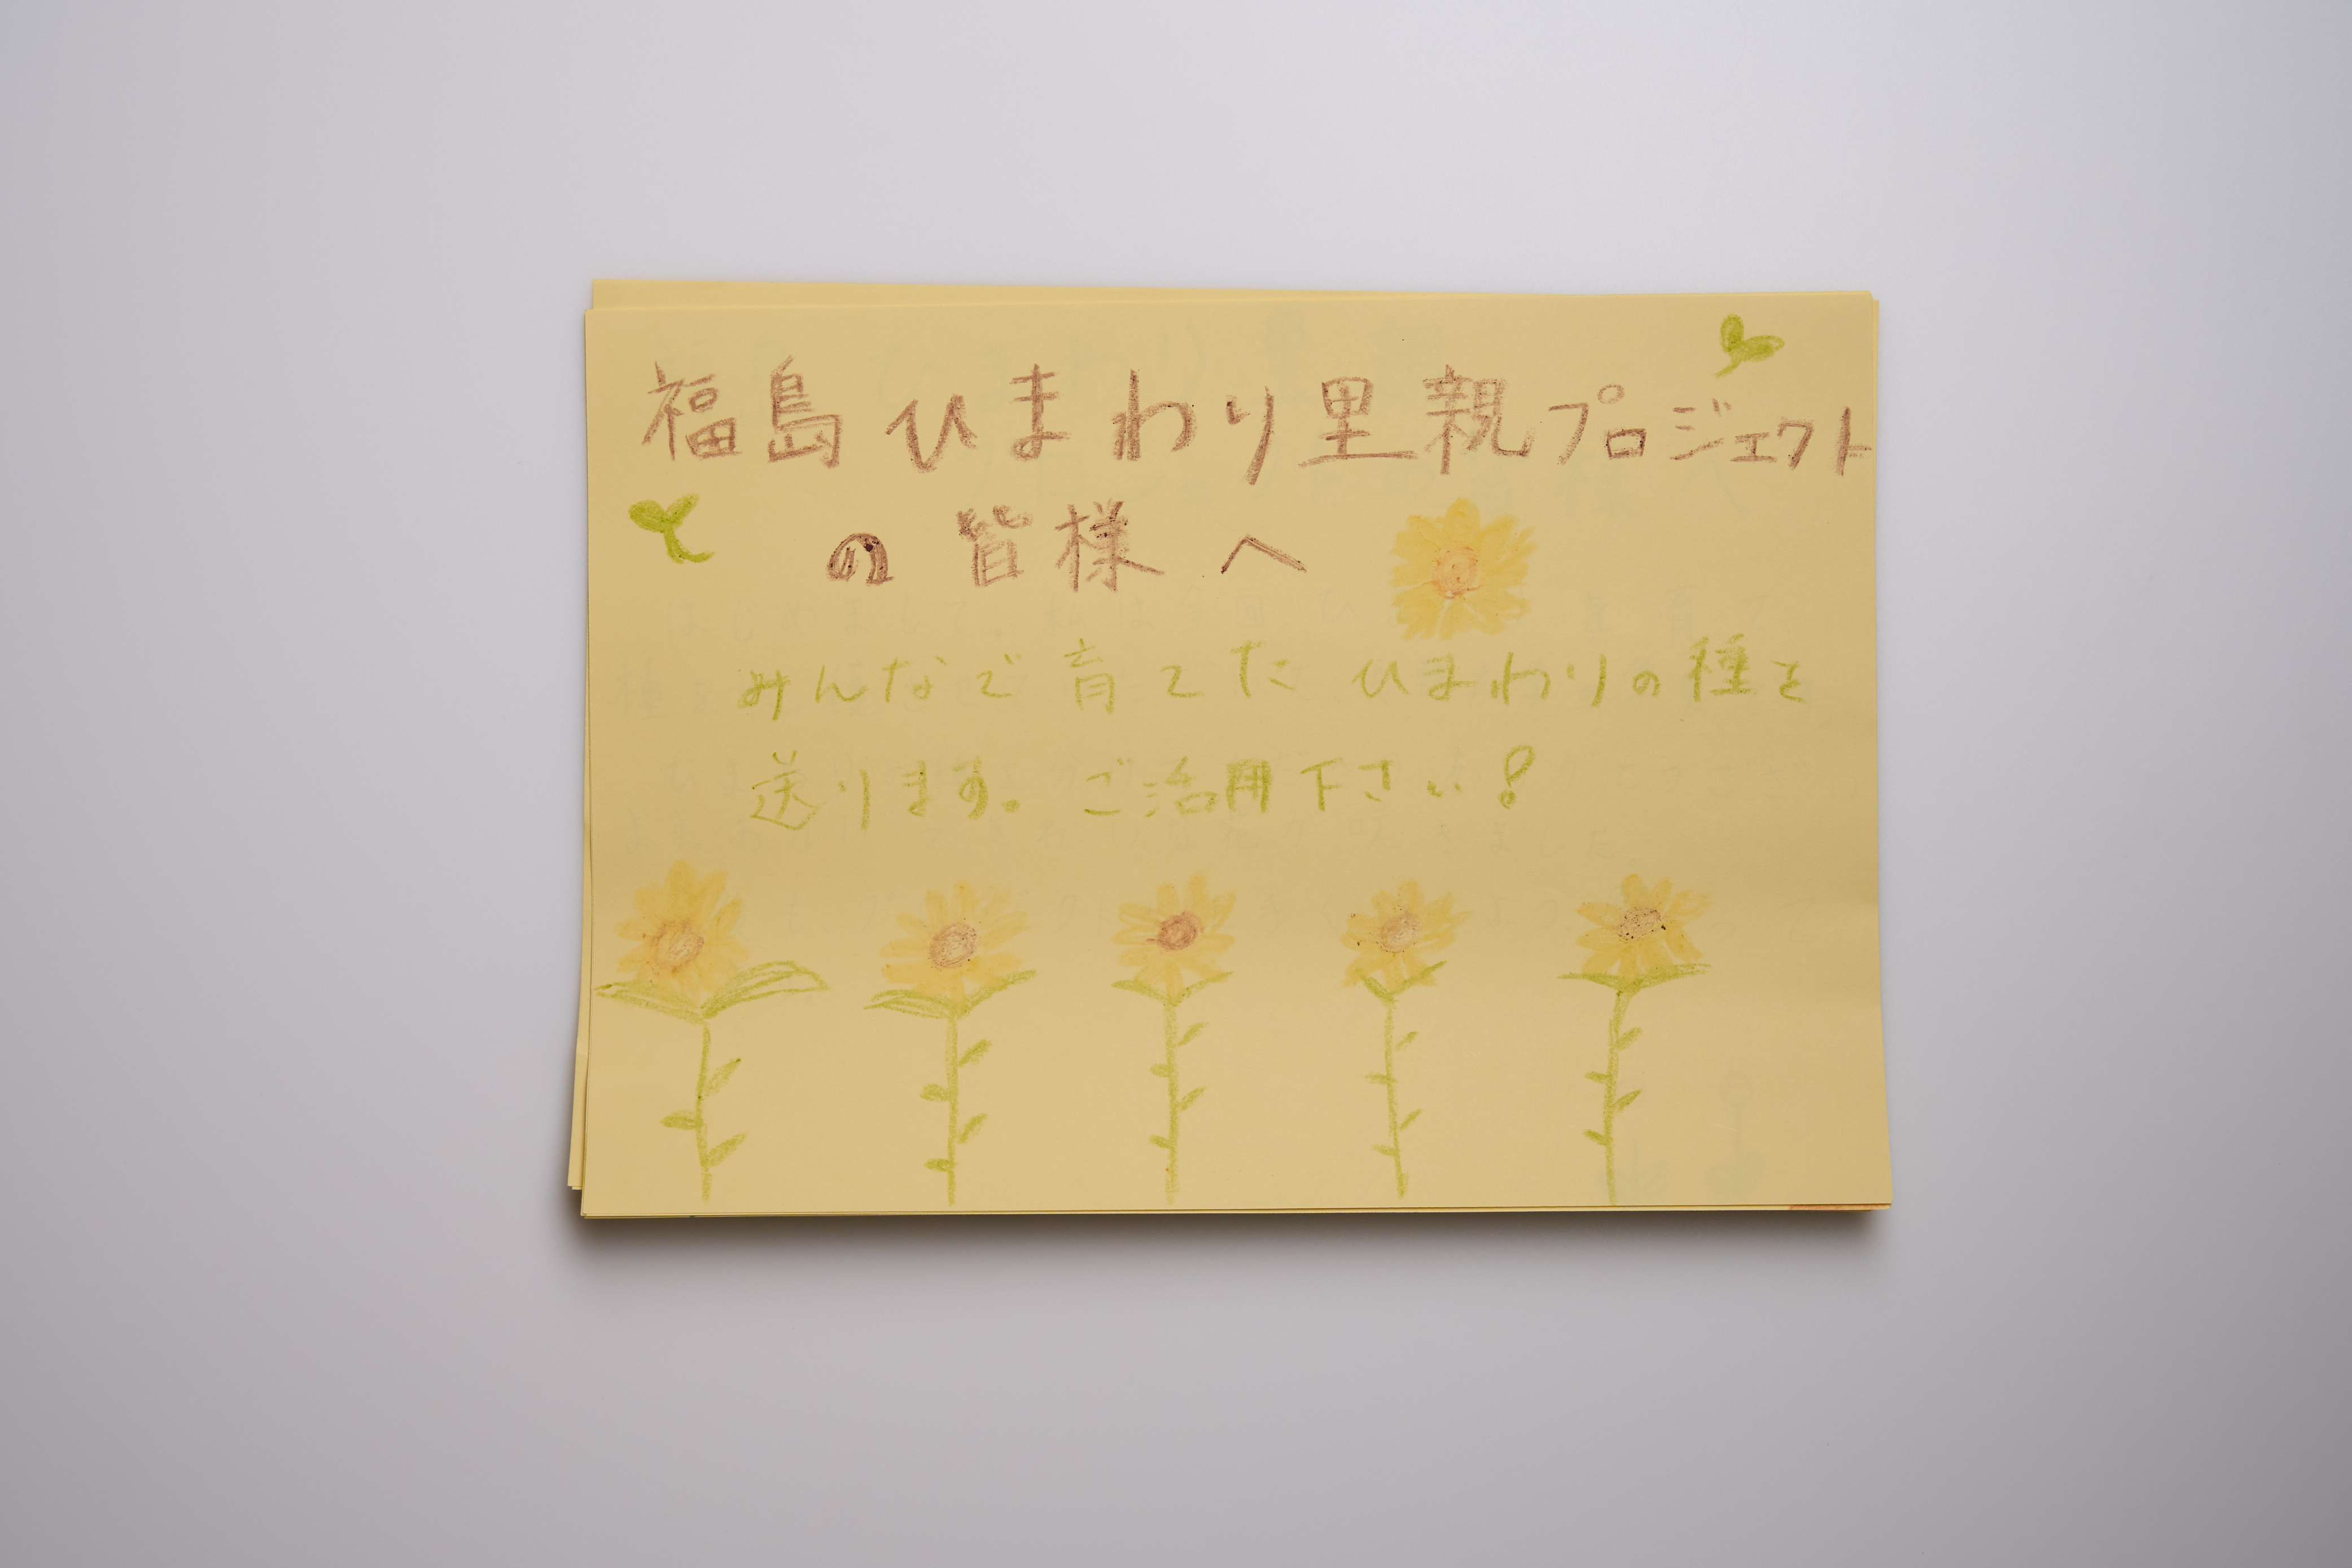 福島ひまわり里親プロジェクト
の皆様へ
みんなで育てたひまわりの種を
送ります。ご活用下さい!